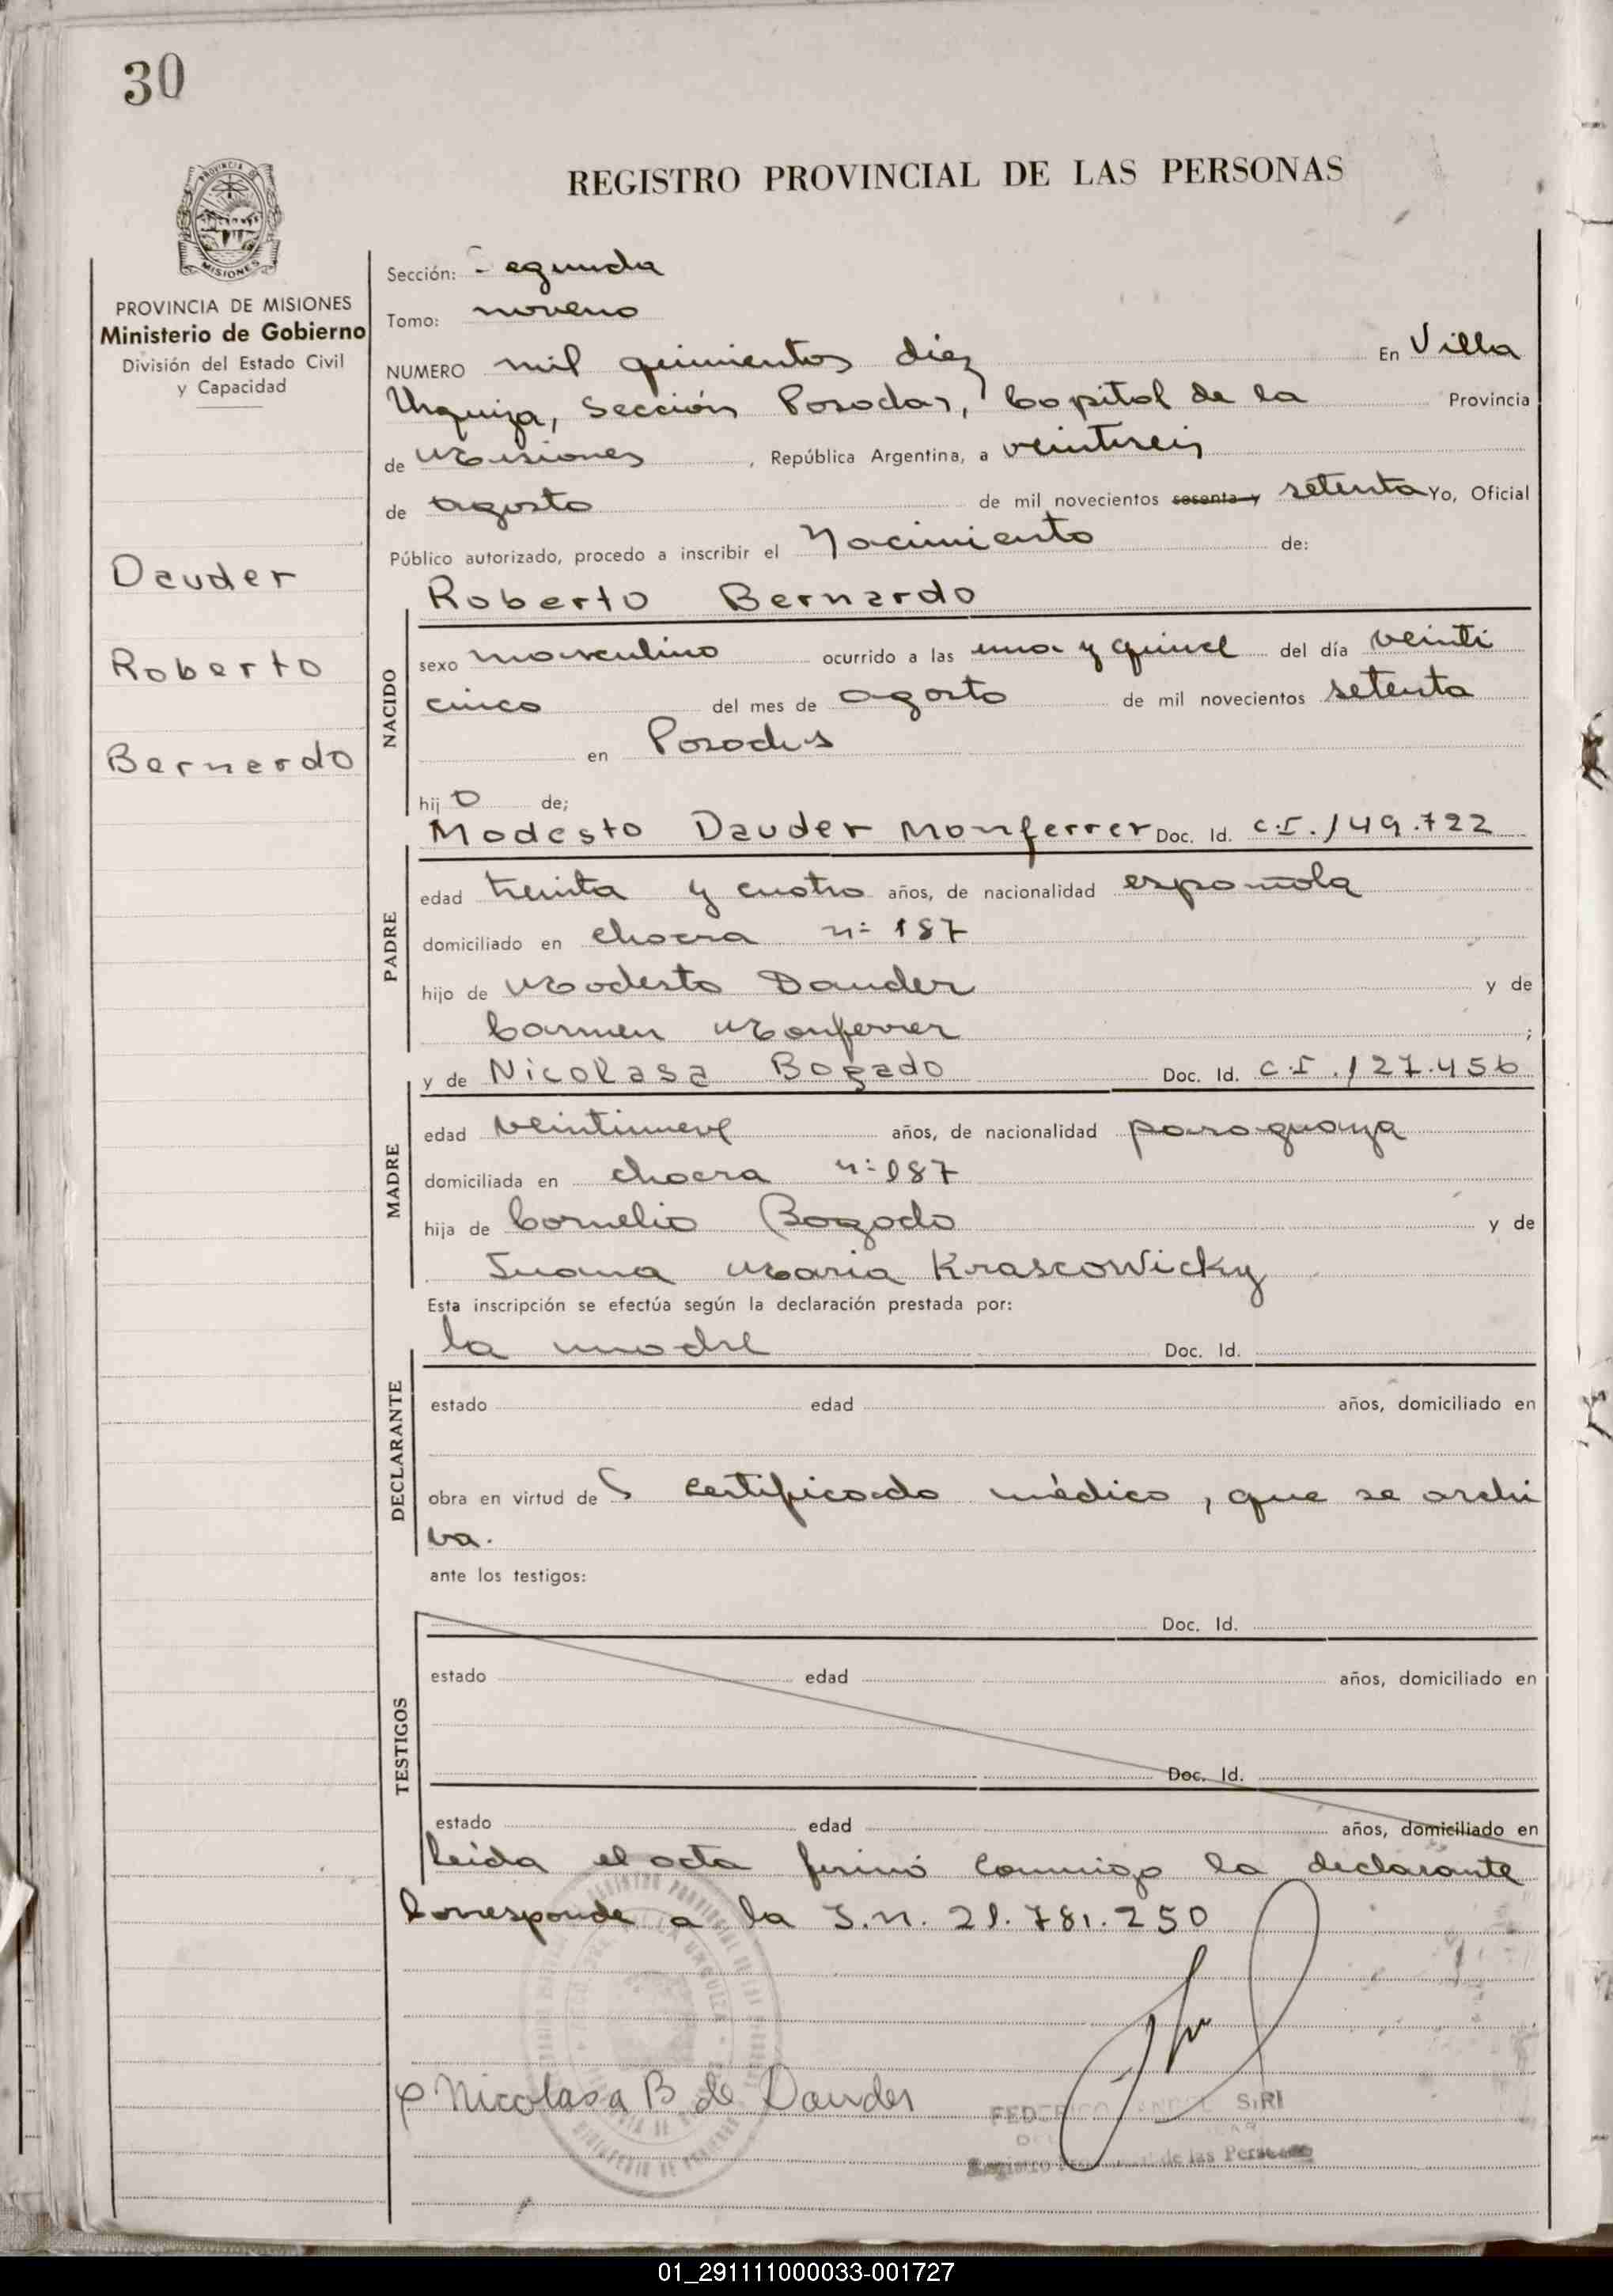 30
REGISTRO PROVINCIAL DE LAS PERSONAS
PROVINCIA DE
MISIONES
PROVINCIA DE MISIONES
Ministerio de Gobierno
División del Estado Civil
y Capacidad
Dauder
Roberto
Bernardo
Sección: Segunda
Tomo: noveno
NUMERO mil quinientos diez En Villa
Urquiza, Sección Posadas, Capital de la Provincia
de Misiones, República Argentina, a veintiseis
de agosto de mil novecientos sesenta y setenta Yo, Oficial
Público autorizado, procedo a inscribir el Nacimiento de:
Roberto Bernardo
NACIDO
sexo masculino ocurrido a las una y quince del día veinti
cinco del mes de agosto de mil novecientos setenta
en Posadas
hijo de;
Modesto Dauder Monferrer Doc. Id. C.I. 149.722
PADRE
edad treinta y cuatro años, de nacionalidad española
domiciliado en chacra nº 187
hijo de Modesto Dauder y de
Carmen Monferrer ;
y de Nicolasa Bogado Doc. Id. C.I. 127.456
MADRE
edad veintinueve años, de nacionalidad paraguaya
domiciliada en chacra nº 187
hija de Cornelio Bogado y de
Juana Maria Krascowicky
Esta inscripción se efectúa según la declaración prestada por:
la madre Doc. Id.
DECLARANTE
estado edad años, domiciliado en
obra en virtud de certificado médico, que se archi
va.
ante los testigos:
TESTIGOS
Doc. Id.
estado edad años, domiciliado en
Doc. Id.
estado edad años, domiciliado en
leida el acta firmó conmigo la declarante
Corresponde a la I.n. 21.781.250
Nicolasa B de Dauder
FEDERICO SIRI
Registro de las Personas
01_291111000033-001727